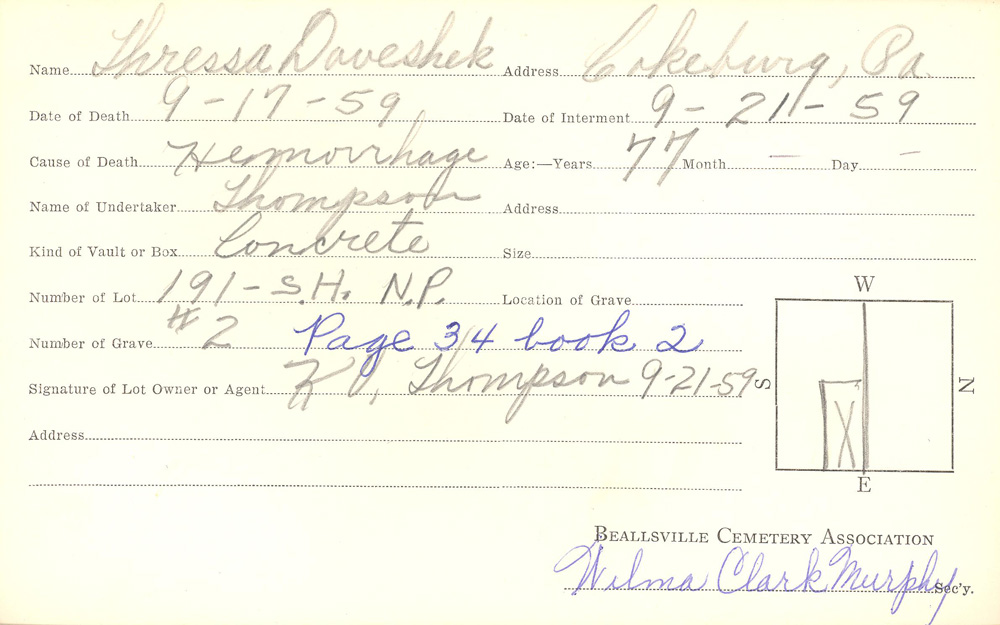 Name Thressa Daveshek Address Cokeburg, Pa.
Date of Death 9-17-59 Date of Interment 9-21-59
Cause of Death Hemorrhage Age:—Years 77 Month — Day —
Name of Undertaker Thompson Address
Kind of Vault or Box Concrete Size
Number of Lot 191-S.H. N.P. Location of Grave
Number of Grave #2 Page 34 book 2
Signature of Lot Owner or Agent K V, Thompson 9-21-59
Address
W
S
N
X
E
Beallsville Cemetery Association
Wilma Clark Murphy Sec'y.